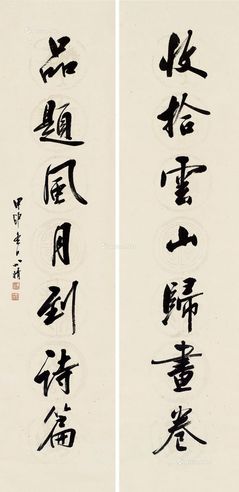 收拾雲山歸畫卷
品題風月到詩篇